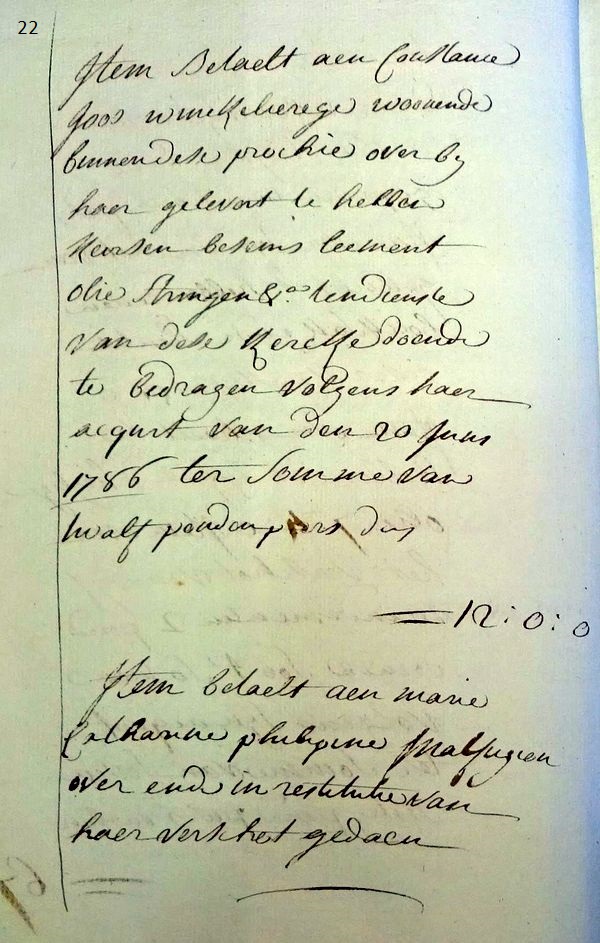 22
Item Betaelt aen Constance
Joos winckelierege woonende
binnen dese prochie over by
haer gelevert te hebben
keirsen besems
olie &a. ten dienste
van dese Kercke doende
te bedragen volgens haer
acquit van den 20 Juni
1786 ter somme van
twalf ponden pars dus
12 : 0 : 0
Item betaelt aen marie
Catharine philippine
over ende in restitutie van
haer verschot gedaen